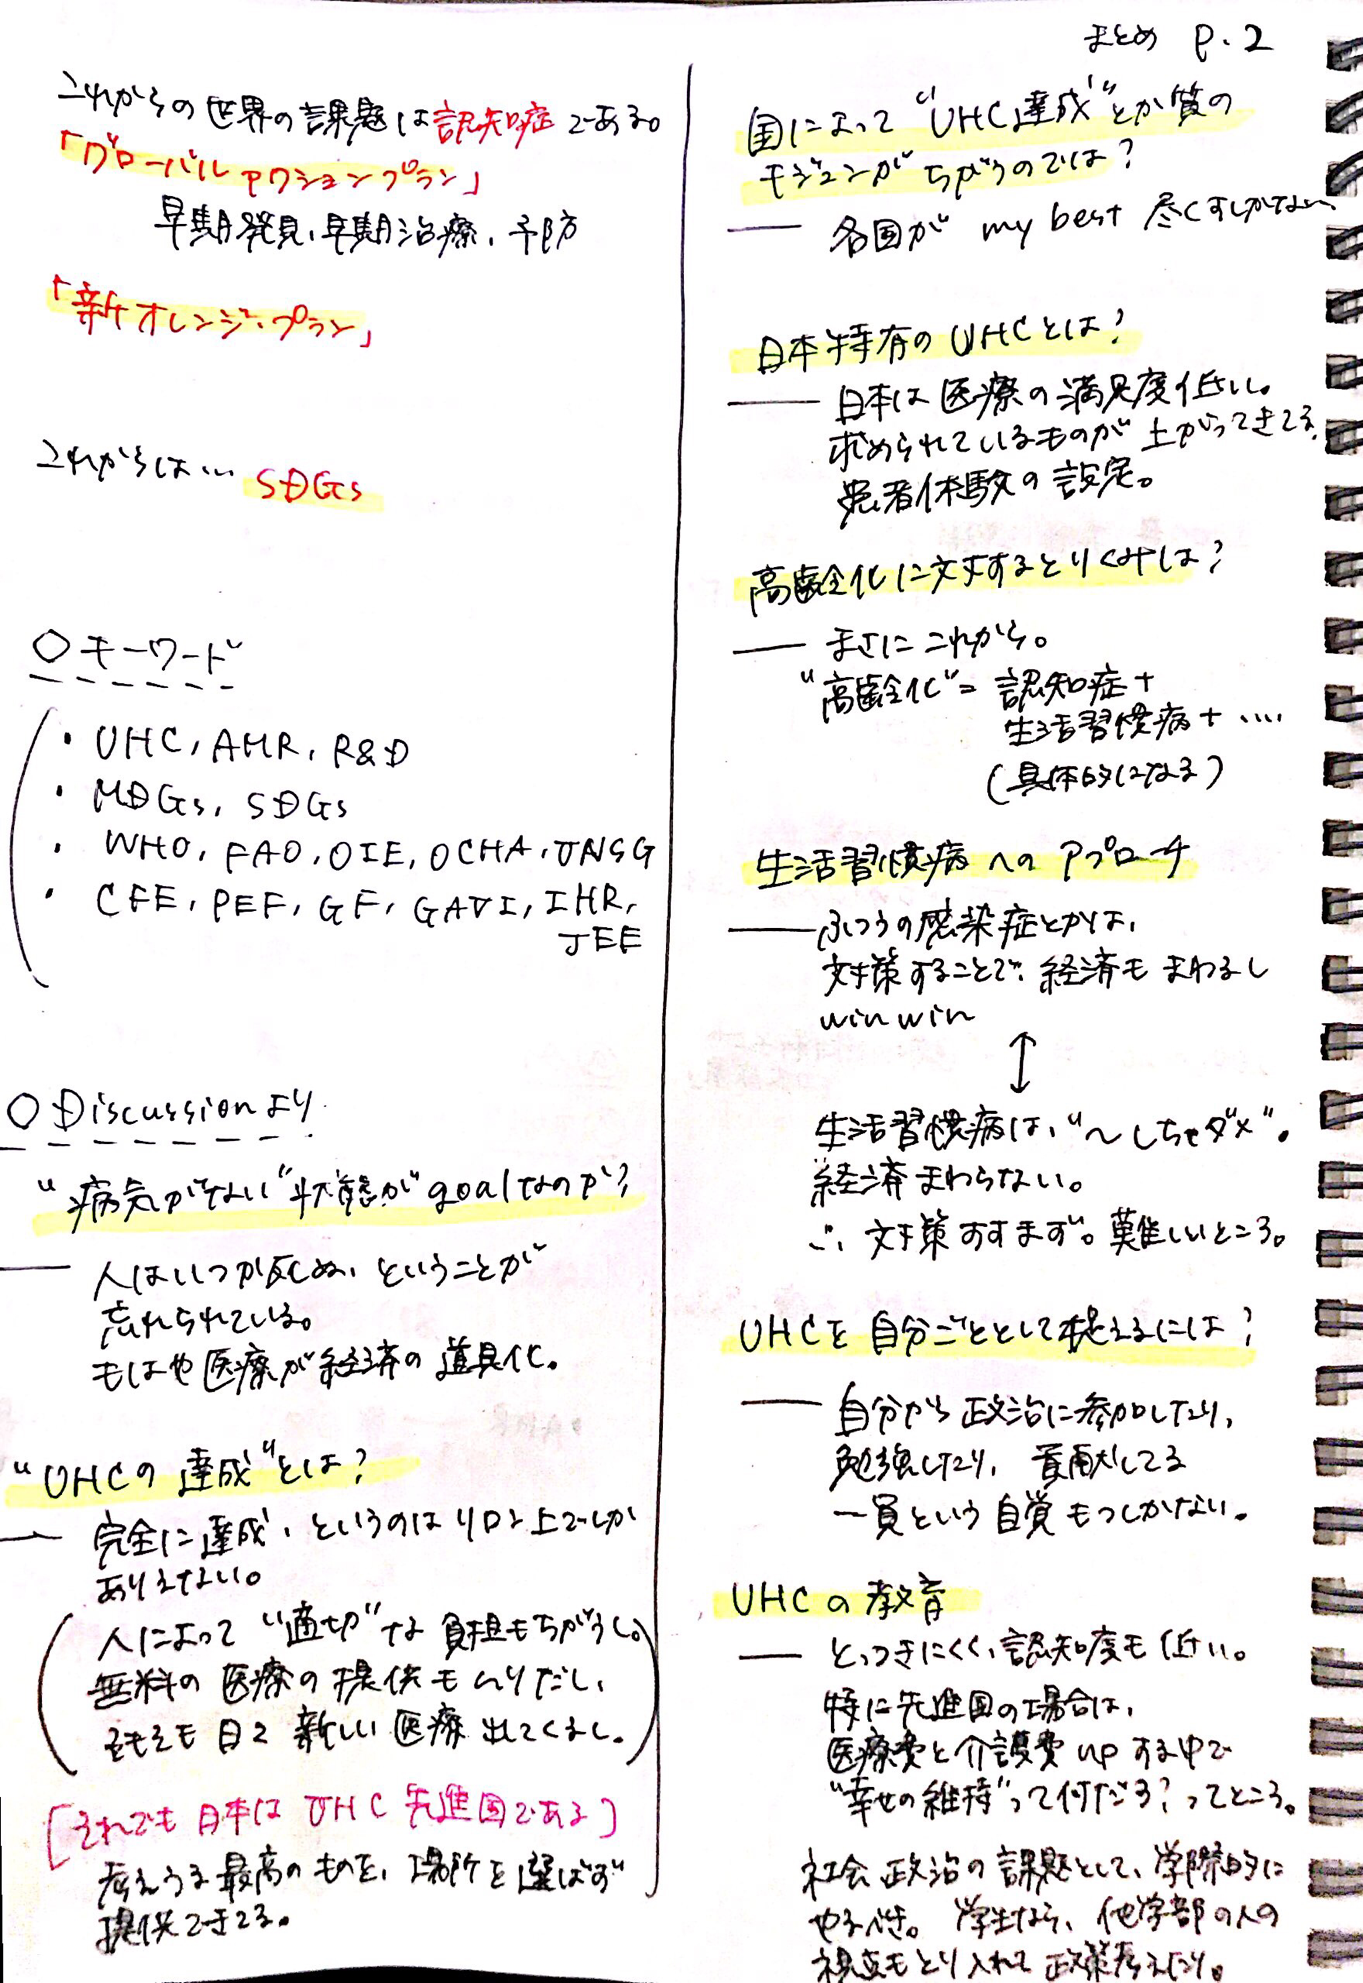 まとめ P.2
これからの世界の課題は認知症である。
「グローバルアクションプラン」
早期発見、早期治療、予防
「新オレンジ・プラン」
これからは… SDGs
○キーワード
・UHC, AMR, R&D
・MDGs, SDGs
・WHO, FAO, OIE, OCHA, UNSG
・CFE, PEF, GF, GAVI, IHR,
JEE
○Discussionより
"病気がない"状態が"goalなのか?
— 人はいつか死ぬ、ということが
忘れられている。
もはや医療が経済の道具化。
"UHCの達成"とは?
— 完全に達成、というのはリロン上でしか
ありえない。
(人によって"適切"な負担もちがうし。
無料の医療の提供もムリだし、
そもそも日々新しい医療出てくるし。)
[それでも日本はUHC先進国である]
考えうる最高のものを、場所を選ばず
提供できてる。
国によって"UHC達成"とか質の
モジュンがちがうのでは?
— 各国が my best 尽くすしかない
日本特有のUHCとは?
— 日本は医療の満足度低い。
求められているものが上がってきてる。
患者体験の設定。
高齢化に対するとりくみは?
— まさにこれから。
"高齢化"= 認知症+
生活習慣病+ ‥‥
(具体的になる)
生活習慣病へのアプローチ
— ふつうの感染症とかは、
対策することで、経済もまわるし
win win
↕
生活習慣病は、"〜しちゃダメ"。
経済まわらない。
∴ 対策すすまず。難しいところ。
UHCを自分ごととして捉えるには?
— 自分から政治に参加したり、
勉強したり、貢献してる
一員という自覚もつしかない。
UHCの教育
— とっつきにくく、認知度も低い。
特に先進国の場合は、
医療費と介護費upする中で
"幸せの維持"って何だろ?ってところ。
社会、政治の課題として、学際的に
やるべき。学生なら、他学部の人の
視点もとり入れて政策考えたり。